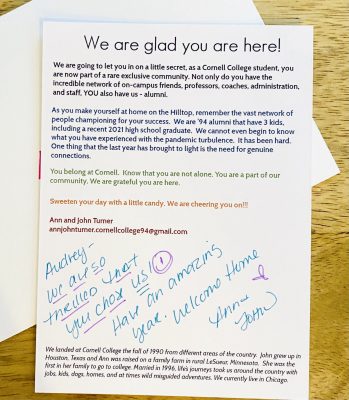 We are glad you are here!
We are going to let you in on a little secret, as a Cornell College student, you
are now part of a rare exclusive community. Not only do you have the
incredible network of on-campus friends, professors, coaches, administration,
and staff, YOU also have us - alumni.
As you make yourself at home on the Hilltop, remember the vast network of
people championing for your success. We are '94 alumni that have 3 kids,
including a recent 2021 high school graduate. We cannot even begin to know
what you have experienced with the pandemic turbulence. It has been hard.
One thing that the last year has brought to light is the need for genuine
connections.
You belong at Cornell. Know that you are not alone. You are a part of our
community. We are grateful you are here.
Sweeten your day with a little candy. We are cheering you on!!!
Ann and John Turner
annjohnturner.cornellcollege94@gmail.com
Audrey-
We are so
thrilled that
you chose us!
Have an amazing
year. Welcome Home
Ann &
John
We landed at Cornell College the fall of 1990 from different areas of the country. John grew up in
Houston, Texas and Ann was raised on a family farm in rural LeSueur, Minnesota. She was the
first in her family to go to college. Married in 1996, life's journeys took us around the country with
jobs, kids, dogs, homes, and at times wild misguided adventures. We currently live in Chicago.